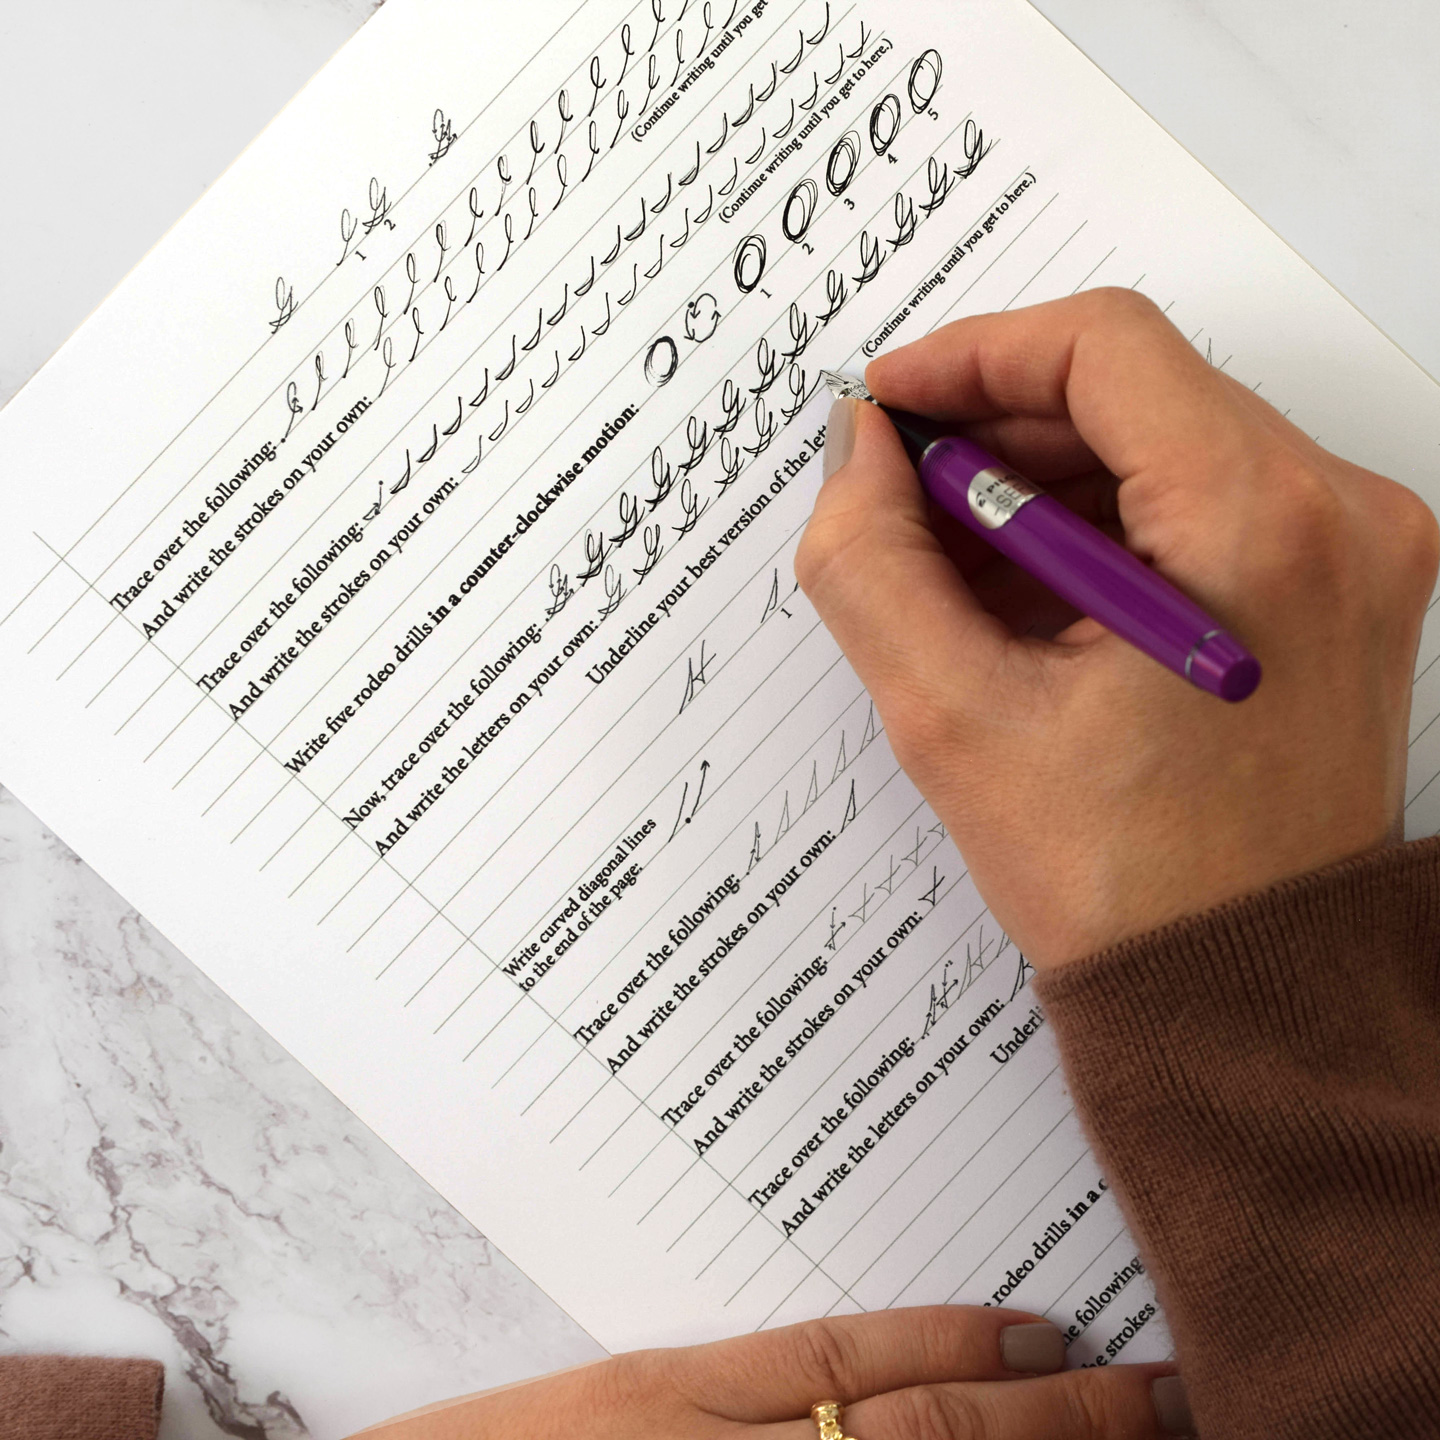 G l G
1 2
(Continue writing until you get
Trace over the following:
And write the strokes on your own:
(Continue writing until you get to here.)
Trace over the following:
And write the strokes on your own:
(Continue writing until you get to here.)
Write five rodeo drills in a counter-clockwise motion:
1 2 3 4 5
Now, trace over the following: G G G G G G G G G G G G
And write the letters on your own: G G G G G G
(Continue writing until you get to here.)
Underline your best version of the
H
1
Write curved diagonal lines
to the end of the page:
Trace over the following:
And write the strokes on your own:
Trace over the following:
And write the strokes on your own:
Trace over the following: H H
And write the letters on your own:
rodeo drills in a
following:
strokes
PILOT